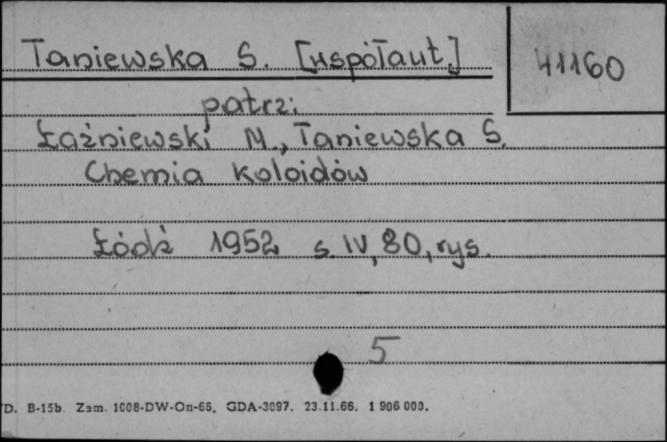 Taniewska S. [współaut]
41160
patrz:
Łaźniewski M., Taniewska S.
Chemia Koloidów
Łódź 1952 s. IV, 80, rys.
5
D. B-15b. Zam. 1008-DW-On-66. GDA-3097. 23.11.66. 1 906 000.